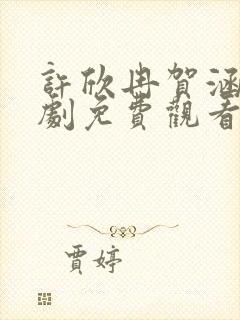 許欣冉賀涵
劇免費觀看
賈婷